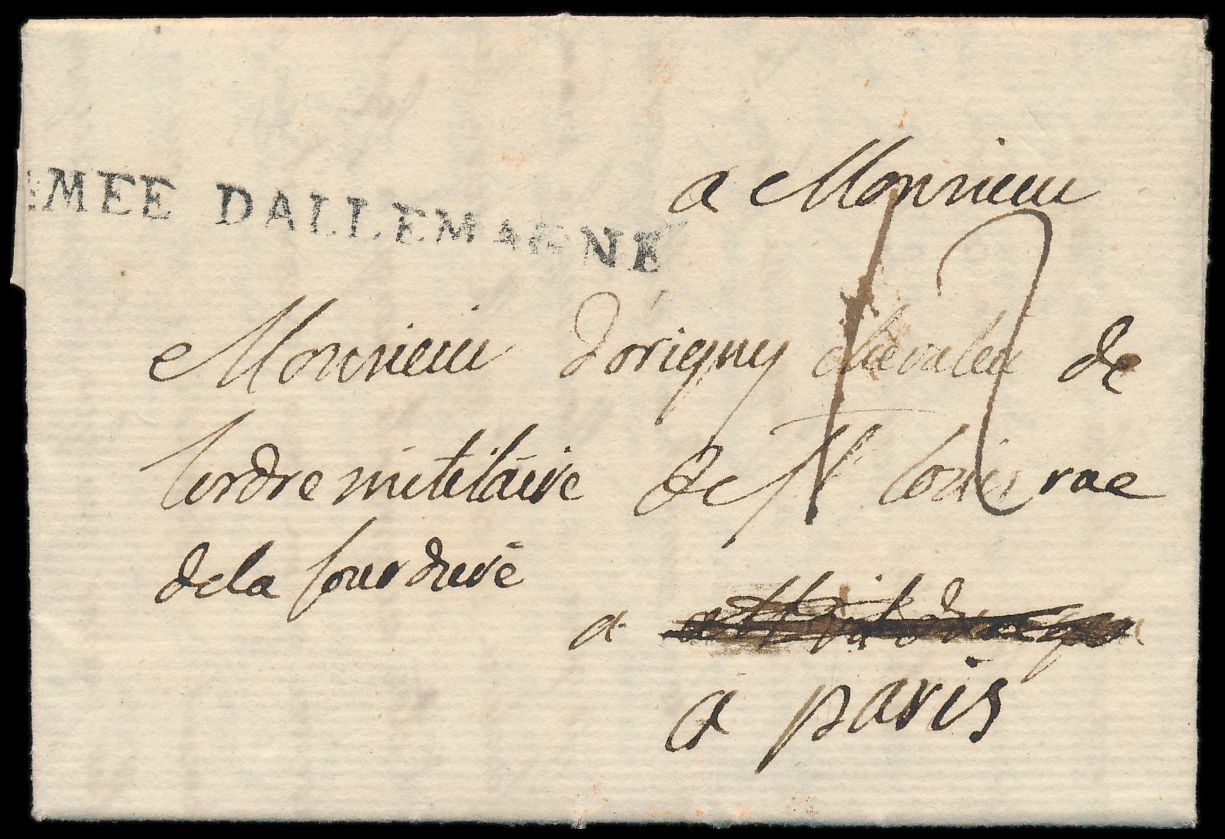 MEE DALLEMAGNE
a Monsieur
12
Monsieur dorigny chevalier de
lordre militaire de St louis rue
de la sourdiere
a
a paris